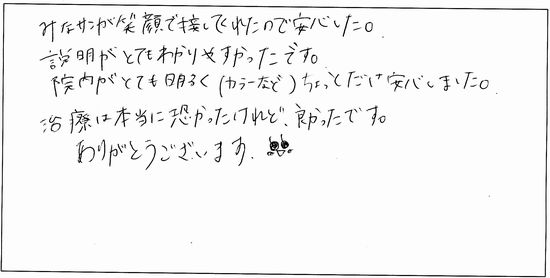 みなサンが笑顔で接してくれたので安心した。
説明がとてもわかりやすかったです。
院内がとても明るく(カラーなど)ちょっとだけ安心しました。
治療は本当に恐かったけれど、良かったです。
ありがとうございます、